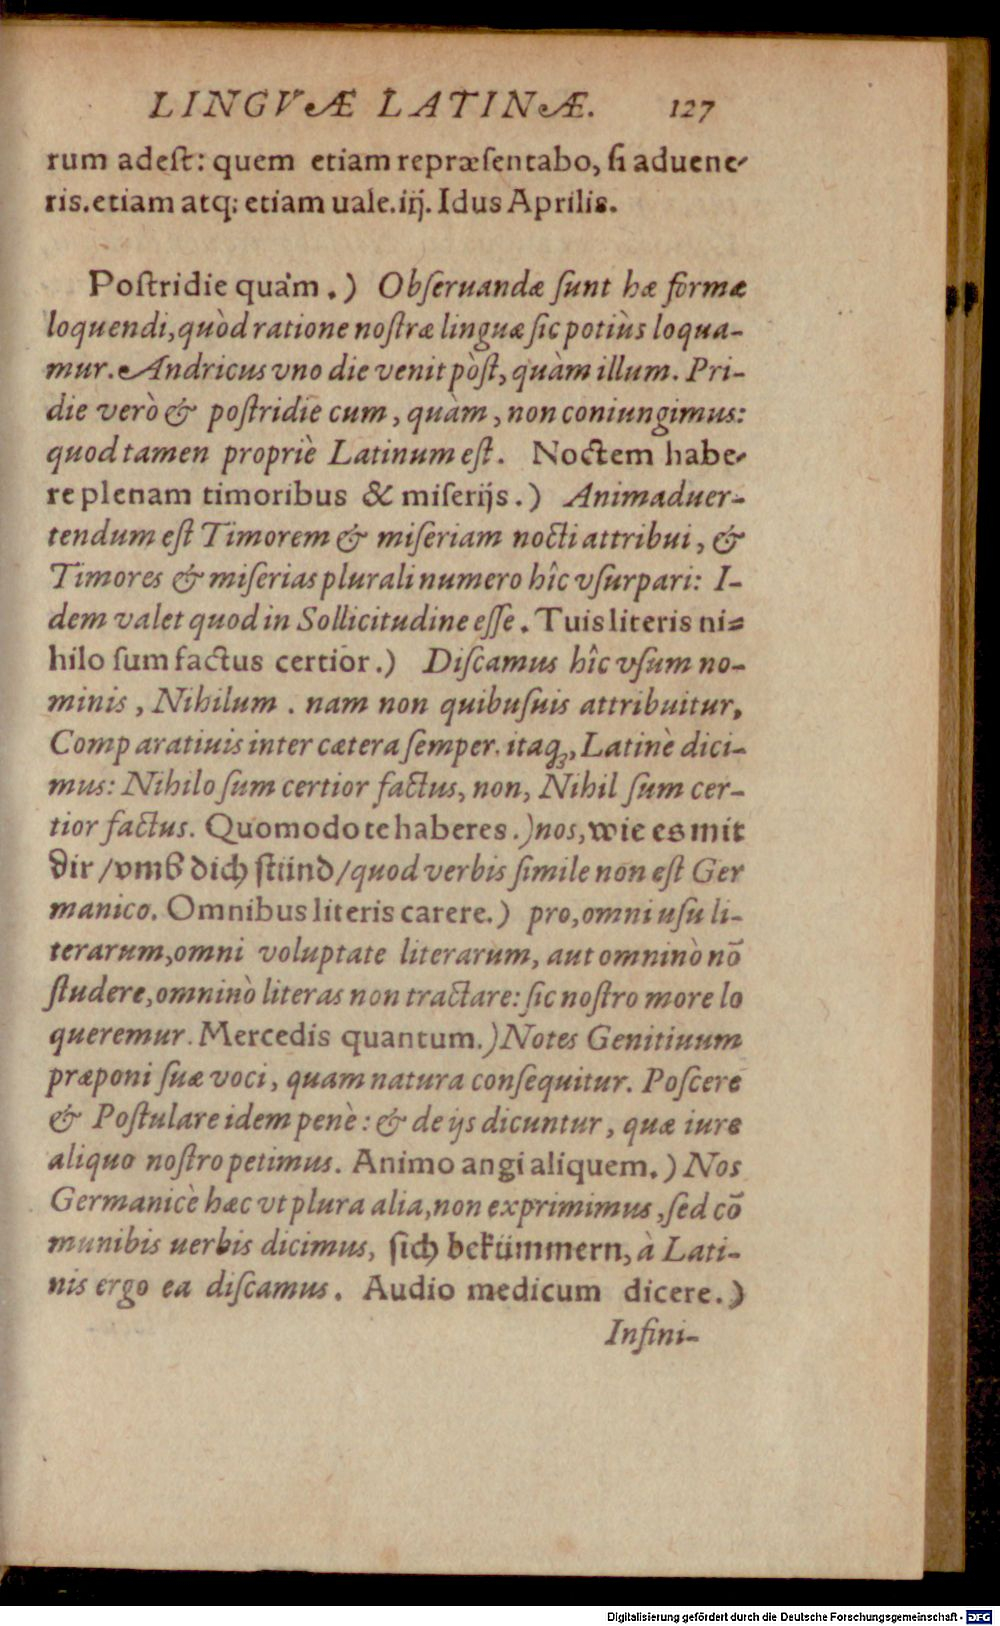 LINGVÆ LATINÆ. 127
rum adest: quem etiam repræsentabo, si aduene-
ris. etiam atq; etiam uale. iij. Idus Aprilis.
Postridie quàm.) Obseruandæ sunt hæ formæ
loquendi, quòd ratione nostræ linguæ sic potiùs loqua-
mur. Andricus vno die venit pòst, quàm illum. Pri-
die verò & postridie cum, quàm, non coniungimus:
quod tamen propriè Latinum est. Noctem habe-
re plenam timoribus & miserijs.) Animaduer-
tendum est Timorem & miseriam nocti attribui, &
Timores & miserias plurali numero hîc vsurpari: I-
dem valet quod in Sollicitudine esse. Tuis literis ni=
hilo sum factus certior.) Discamus hîc vsum no-
minis, Nihilum. nam non quibusuis attribuitur,
Comparatiuis inter cætera semper. itaq;, Latinè dici-
mus: Nihilo sum certior factus, non, Nihil sum cer-
tior factus. Quomodo te haberes.) nos, wie es mit
dir / vmb dich stünd / quod verbis simile non est Ger
manico. Omnibus literis carere.) pro, omni usu li-
terarum, omni voluptate literarum, aut omninò nō
studere, omninò literas non tractare: sic nostro more lo
queremur. Mercedis quantum.) Notes Genitiuum
præponi suæ voci, quam natura consequitur. Poscere
& Postulare idem penè: & de ijs dicuntur, quæ iure
aliquo nostro petimus. Animo angi aliquem.) Nos
Germanicè hæc vt plura alia, non exprimimus, sed cō
munibis uerbis dicimus, sich bekümmern, à Lati-
nis ergo ea discamus. Audio medicum dicere.)
Infini-
Digitalisierung gefördert durch die Deutsche Forschungsgemeinschaft - DFG